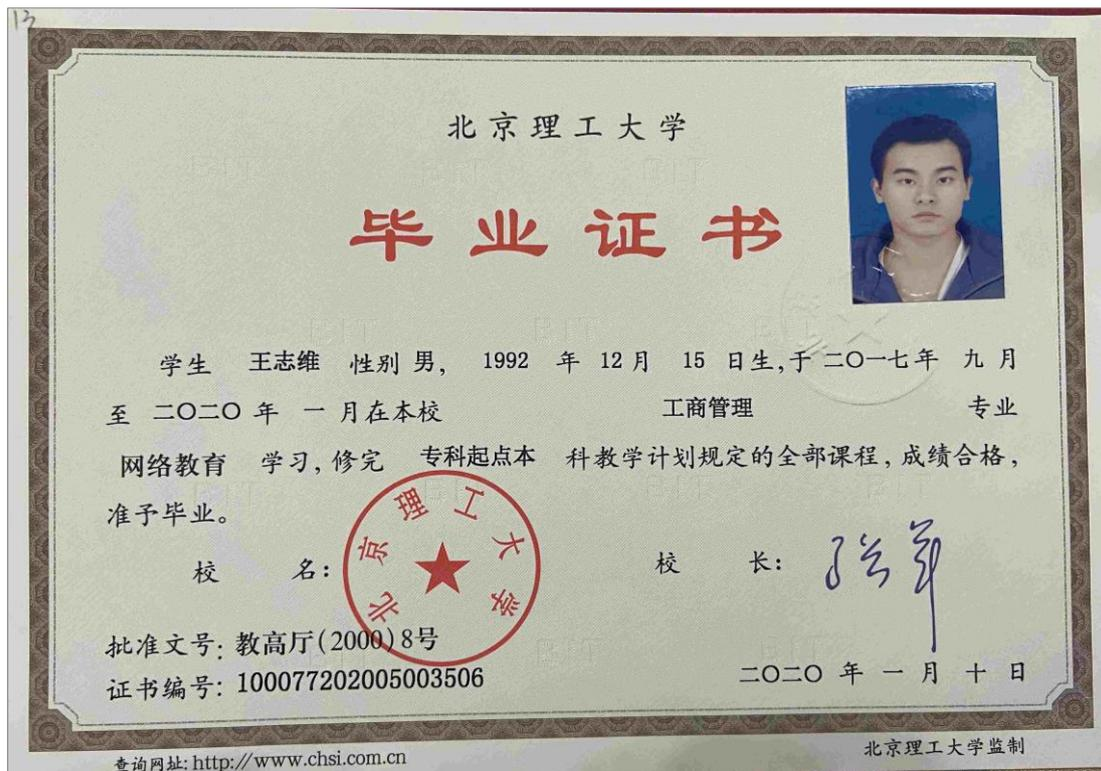 13
北京理工大学
毕业证书
学生 王志维 性别 男, 1992 年 12月 15 日生,于 二〇一七年 九 月
至 二〇二〇 年 一 月在本校 工商管理 专业
网络教育 学习,修完 专科起点本 科教学计划规定的全部课程,成绩合格,
准予毕业。
校 名: 校 长:
北京理工大学
批准文号: 教高厅(2000)8号
证书编号: 100077202005003506
二〇二〇 年 一 月 十 日
查询网址: http://www.chsi.com.cn
北京理工大学监制